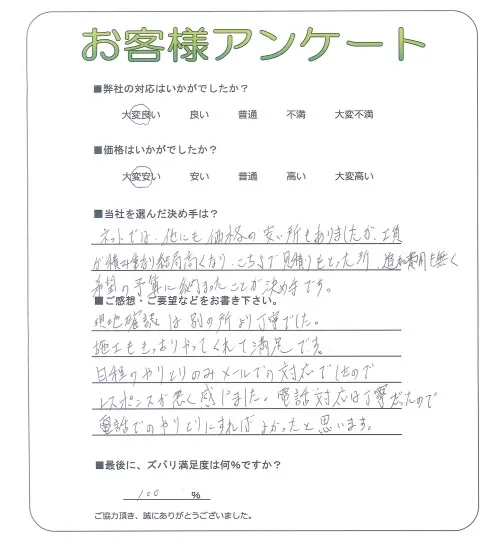 お客様アンケート
■弊社の対応はいかがでしたか?
大変良い 良い 普通 不満 大変不満
■価格はいかがでしたか?
大変安い 安い 普通 高い 大変高い
■当社を選んだ決め手は?
ネットでは、他にも価格の安い所もありましたが、工具
が積み重なり結局高くなり、こちらで見積りをとった所、追加費用も無く
希望の予算に納まったことが決め手です。
■ご感想・ご要望などをお書き下さい。
現地確認は別の所より丁寧でした。
施工もきっちりやってくれて満足です。
日程のやりとりのみメールでの対応でしたので
レスポンスが悪く感じました。電話対応は丁寧だったので
電話でのやりとりにすればよかったと思います。
■最後に、ズバリ満足度は何%ですか?
100 %
ご協力頂き、誠にありがとうございました。